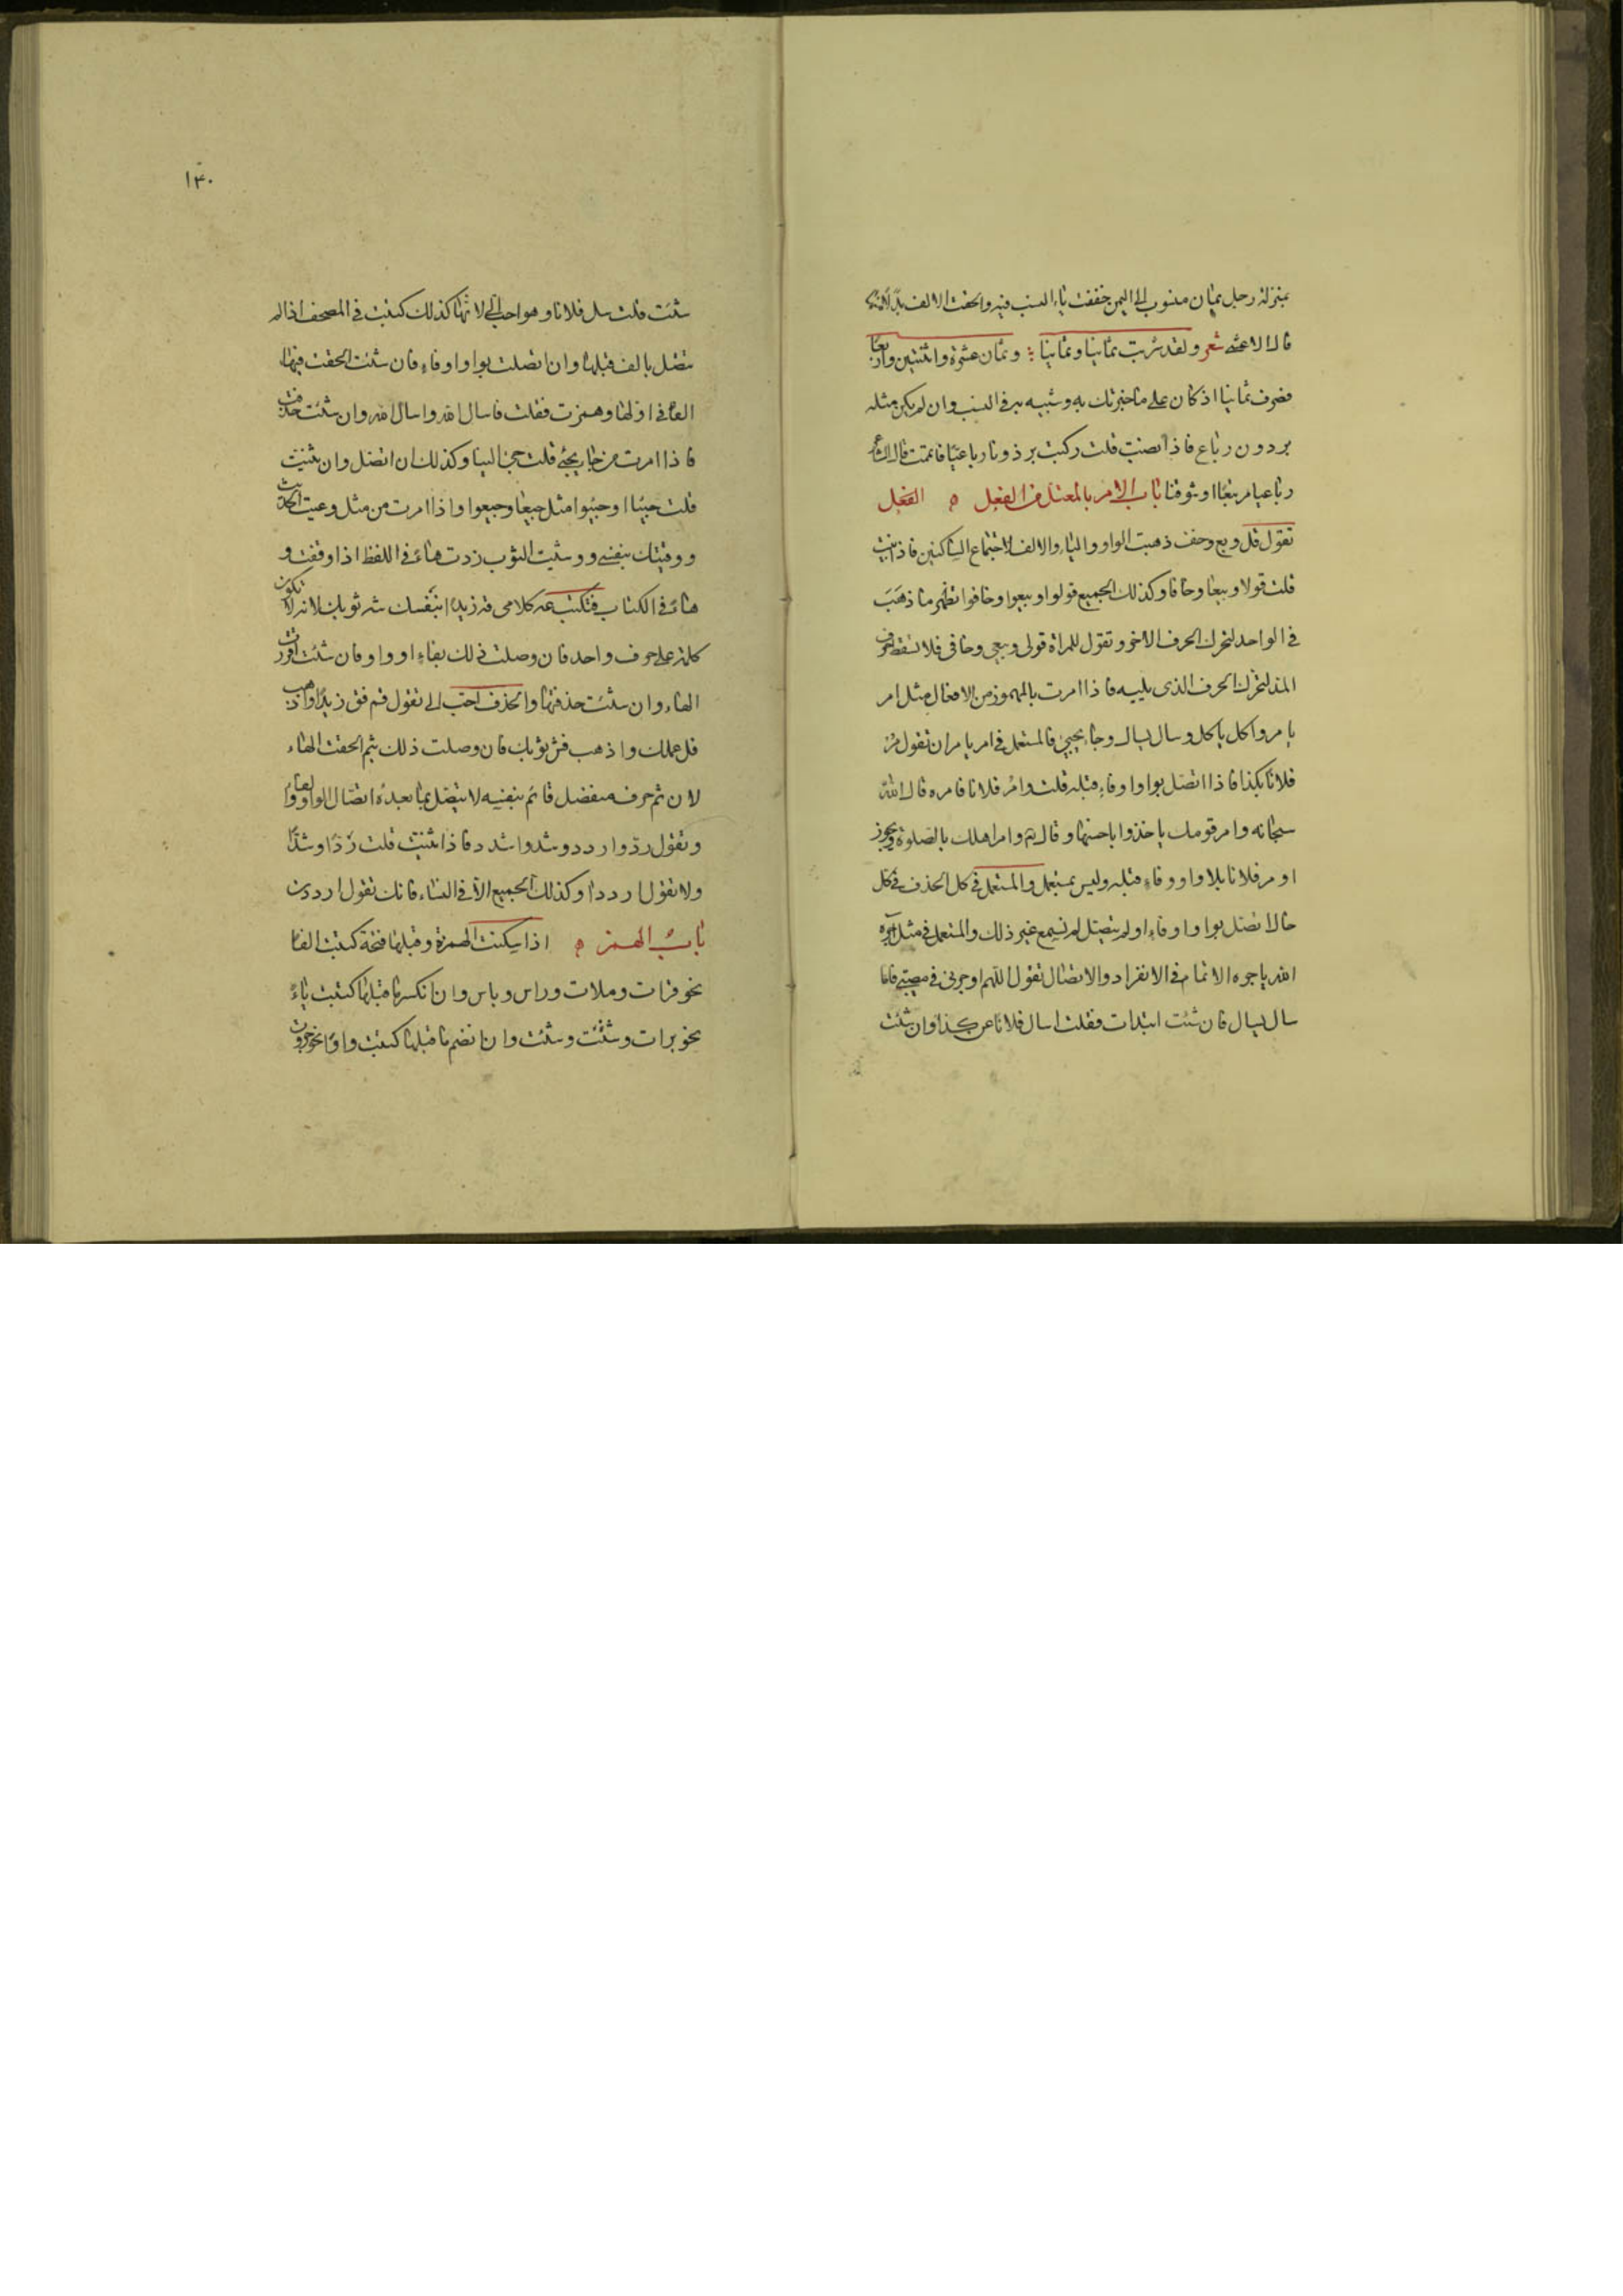 بمنزلة رجل يمان منسوب الى اليمن خففت ياء النسب فيه والحقت الالف بدلا منها
قال الاعشى شعر ولقد شربت ثمانيا وثمانيا وثمان عشرة واثنتين واربعا
فصرف ثمانيا اذ كان على ما خبرتك به وشبيه به في النسب وان لم يكن مثله
برذون رباع فاذا نصبت قلت ركبت برذونا رباعيا فاتممت قال الشاعر
رباعيا مربعا او شوقبا باب الامر بالمعتل من الفعل ه الفعل
تقول قل وبع وخف ذهبت الواو والياء والالف لاجتماع الساكنين فاذا ثنيت
قلت قولا وبيعا وخافا وكذلك الجميع قولوا وبيعوا وخافوا تظهر ما ذهب
في الواحد لتحرك الحرف الاخر وتقول للمراة قولى وبيعي وخافى فلا تسقط حرف
المد لتحرك الحرف الذى يليه فاذا امرت بالمهموز من الافعال مثل امر
يامر واكل ياكل وسال يسال وجاء يجيئ فالمستعمل في امر يامر ان تقول مر
فلانا بكذا فاذا اتصل بواو او فاء قبله قلت وامر فلانا فامره قال الله
سبحانه وامر قومك ياخذوا باحسنها وقال تع وامر اهلك بالصلوة ويجوز
اومر فلانا بلا واو وفاء قبله وليس بمستعمل والمستعمل في كل الحذف في كل
حالا تصل بواو او فاء او لم يتصل لم نسمع غير ذلك والمستعمل في مثل آجره
الله ياجره الاتمام في الانفراد والاتصال تقول اللهم اوجرنى في مصيبتي فاما
سال يسال فان شئت ابتدات فقلت اسال فلانا عن كذا وان شئت
١٣٠
شئت قلت سل فلانا وهو احب الى لانها كذلك كتبت في المصحف اذا لم
تتصل بالف قبلها وان اتصلت بواو او فاء فان شئت الحقت فيها
الفا في اولها وهمزت فقلت فاسال الله واسال الله وان شئت حذفت
فاذا امرت من جاء يجئ قلت جئ الينا وكذلك ان اتصل وان ثنيت
قلت جيئا او جيئوا مثل جيعا وجيعوا واذا امرت من مثل وعيت الحديث
ووقيتك بنفسي ووشيت الثوب زدت هاء في اللفظ اذا وقفت و
هاء في الكتاب فتكتب عه كلامى قه زيدا بنفسك شه ثوبك لانه لا تكون
كلمة على حرف واحد فان وصلت ذلك بفاء او واو فان شئت اقررت
الهاء وان شئت حذفتها والحذف احب الى تقول قم فق زيدا واذهب
فل عملك واذهب فش ثوبك فان وصلت ذلك بثم الحقت الهاء
لان ثم حرف منفصل قائم بنفسه لا يتصل بما بعده اتصال الواو والفاء
وتقول رد وارددو شد واشدد فاذا ثنيت قلت ردا وشدا
ولا تقول ارددا وكذلك الجميع الا في النساء فانك تقول ارددن
باب الهمز ه اذا سكنت الهمزة وقبلها فتحة كتبت الفا
نحو قرات وملات وراس وباس وان انكسر ما قبلها كتبت ياء
نحو برات وشئت وشئت وان انضم ما قبلها كتبت واوا نحو جروت